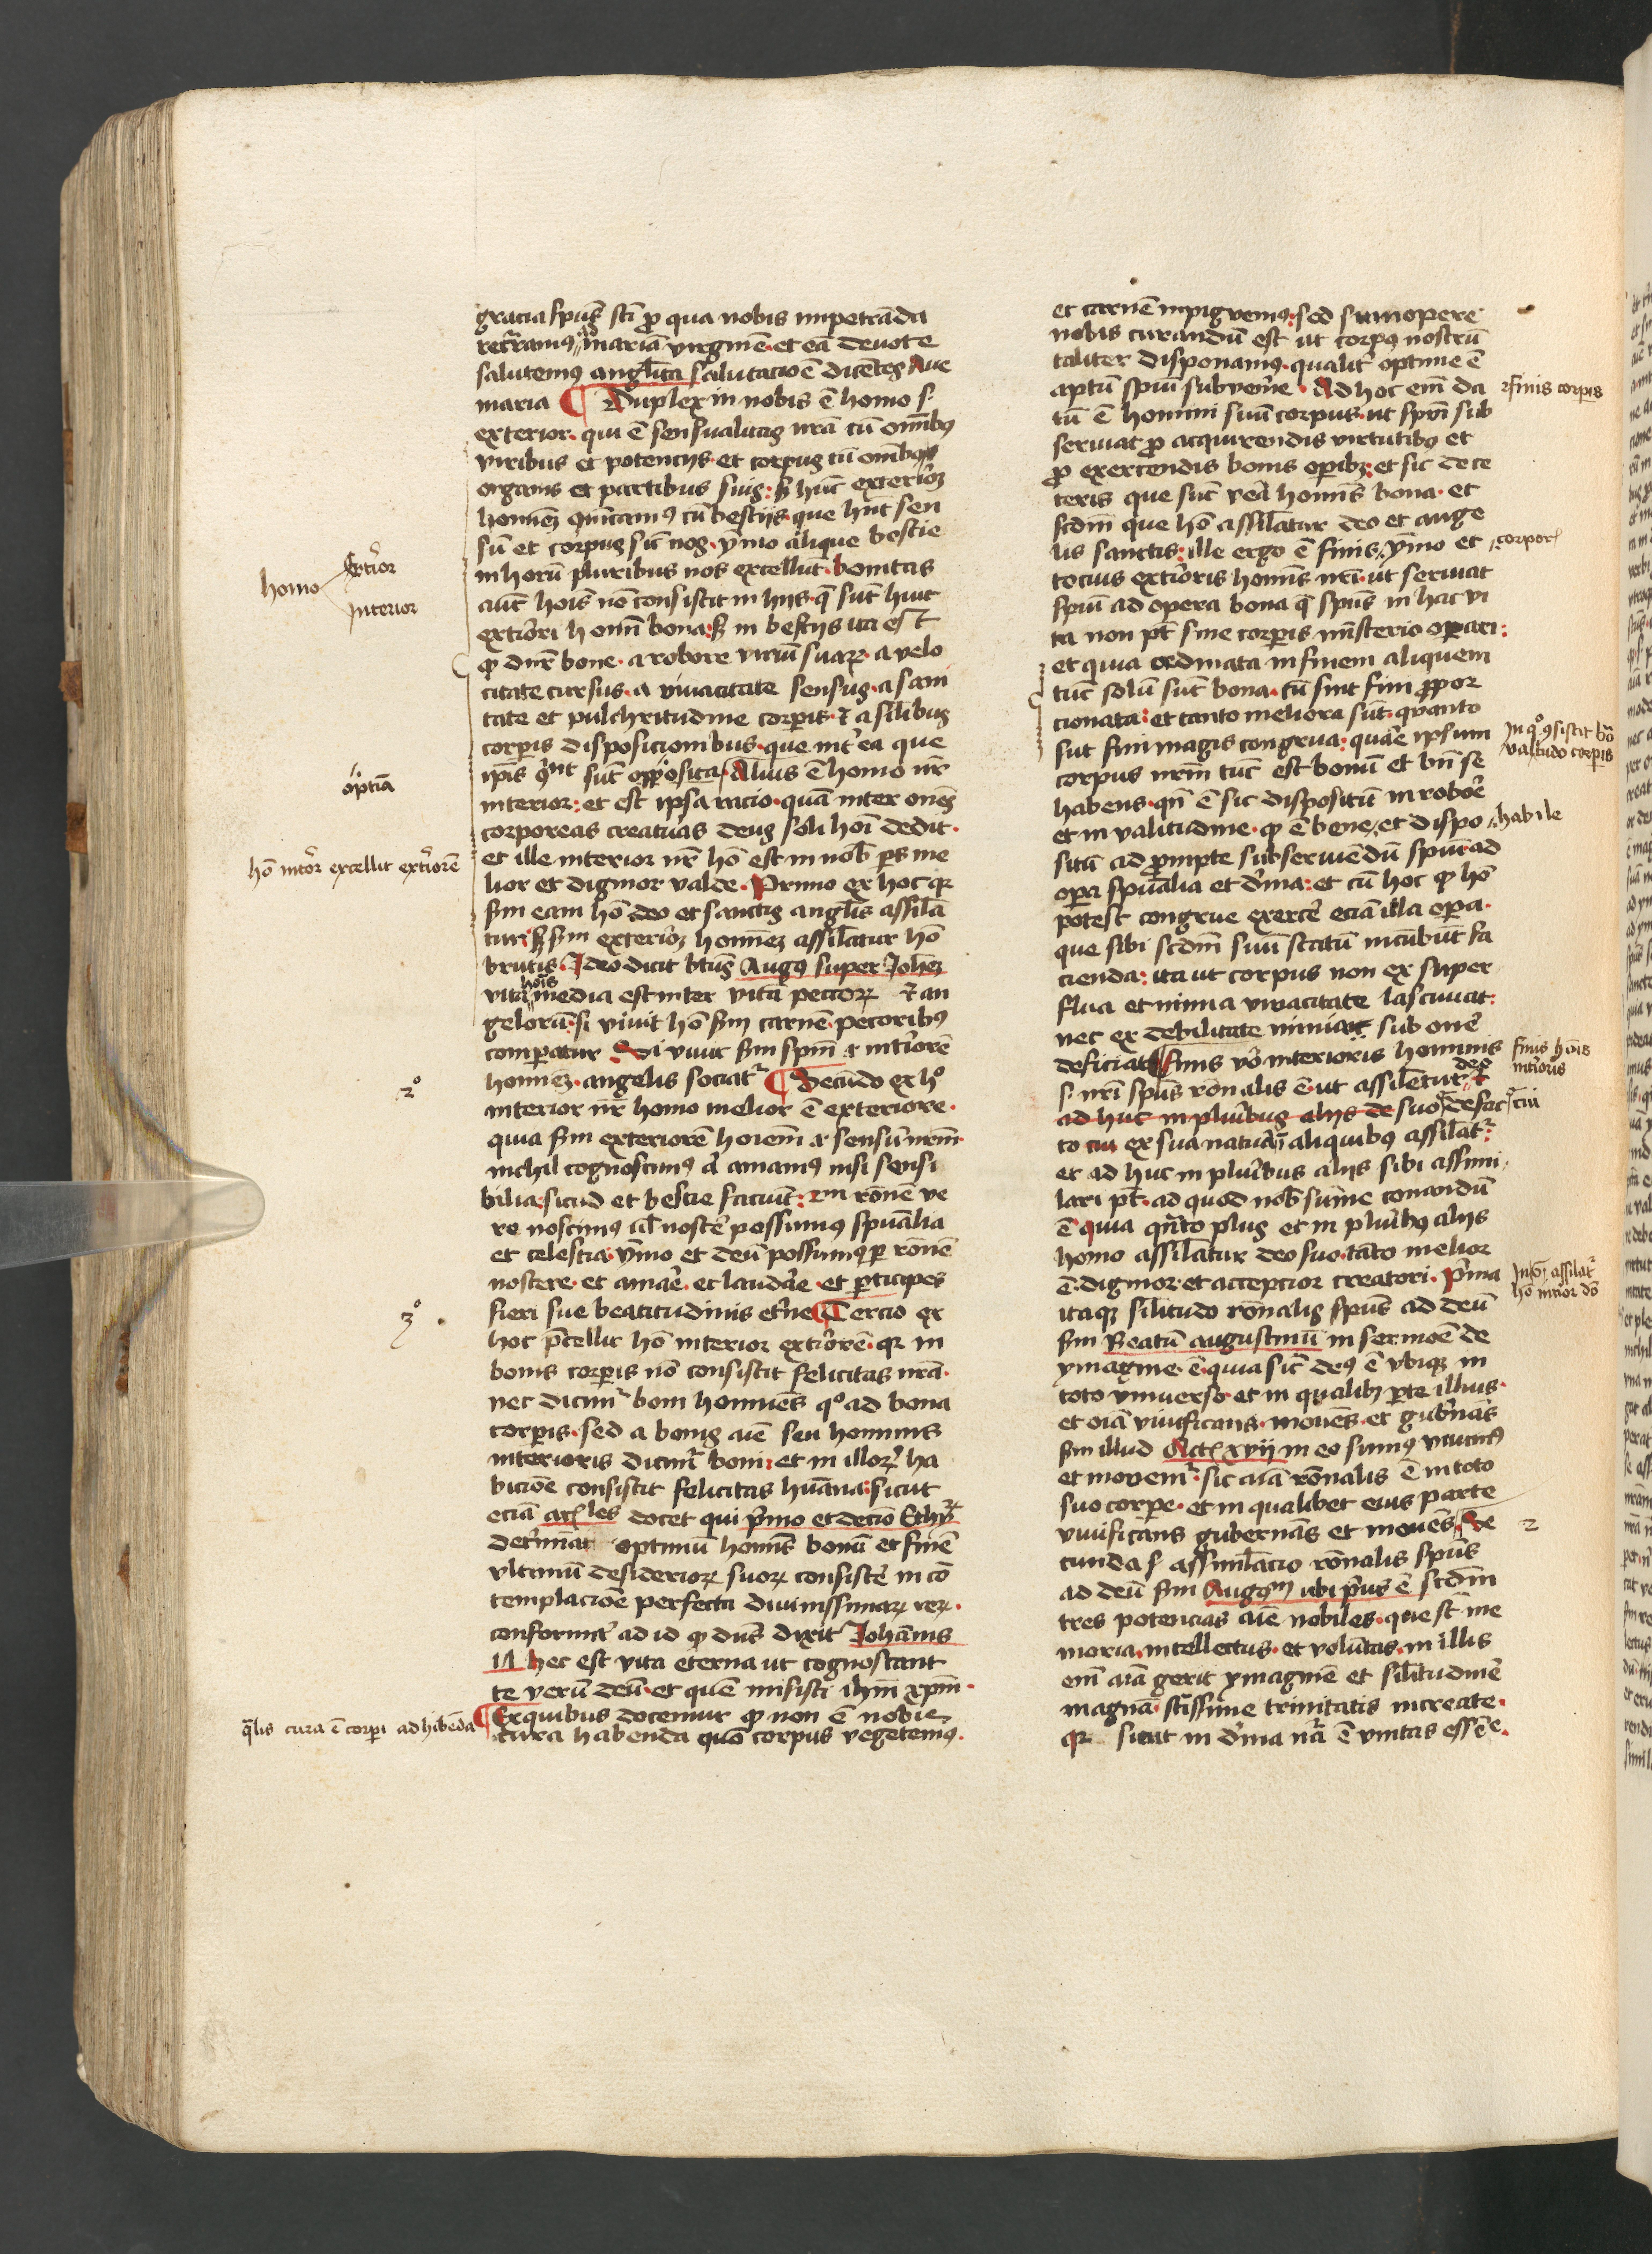 gracia spūs sti pro qua nobis impetrāda
recramꝰ ad mariā virginē · et eā deuote
salutemꝰ anglica salutacioē dicētes Aue
maria ¶ Duplex in nobis ē homo s·
exterior · qui ē sensualitas nrā cū omībꝰ
viribus et potencijs · et corpus cū omībꝫ
organis et partibus suis : sꝫ hūc exteriorꝫ
hominē cū bestijs · que hnt sen
sū et corpus sic nos · ymo alique bestie
in horū pluribus nos excellūt · bonitas
aūt hois nō consistit in hijs · q̄ sunt huic
exteriori homī bona : sꝫ in bestijs ita est
ꝙ dnr bone · a robore viriū suarꝝ · a velo
citate cursus · a viuacitate sensus · a sani
tate et pulchritudine corpis · et a silibus
corpis disposicionibus · que int ea que
sūt opposita · Alius ē homo nr
interior : et est ipsa racio · quā inter om̄es
corporeas creaturas deus soli hoi dedit ·
et ille interior nr hō est in nob̄ ps me
lior et dignior valde · Primo ex hoc qꝛ
scdm eam hō deo et sanctis anglis assila
tur : sꝫ scdm exteriorꝫ hominē assilatur hō
brutis · Ideo dicit btūs Augꝰ super Iohēꝫ
vita hois media est inter vitā pecorꝝ et an
gelorū · si viuit hō scdm carnē · pecoribꝰ
compatur · Si viuit scdm spm et interiorē
hominē · angelis sociatr ¶ Secūdo ex hº
interior nr homo melior ē exteriore ·
quia scdm exteriorē hoiem et sensū nrm
nichil cognoscimꝰ aut amamꝰ nisi sensi
bilia · sicud et bestie faciūt : rōnē ve
ro noscimꝰ ul noscē possumꝰ spūalia
et celestia · ymo et deū possumꝰ p rōnē
noscere · et amare · et laudare · et pticipes
fieri sue beatitudinis eterne ¶ Tercio ex
hoc pcellit hō interior exteriorē · qꝛ in
bonis corpis nō consistit felicitas nrā ·
nec dicimr boni homines qº ad bona
corpis · sed a bonis aīe seu hominis
interioris dicimr boni : et in illorꝝ ha
bicōe consistit felicitas hūana : sicut
eciā arles docet qui primo et decio Ethyꝝ
determiat optimū homis bonū et finē
vltimū desideriorꝝ suorꝝ consistē in cō
templacioē perfecta diuinissimarꝝ rerꝝ ·
conformit ad id ꝙ dns dixit Iohānis
17 hec est vita eterna ut cognoscant
te verū deū · et quē misisti ihm xpm ·
¶ Ex quibus docemur ꝙ non ē nobis
cura habenda quō corpus vegetemꝰ ·
homo
exterior
interior
hō interior excellit exteriorē
2º
3º
q̄lis cura ē corpi adhibēda
et carnē inpigvemꝰ : sed sumopere
nobis curandū est ut corpꝰ nostrū
taliter disponamꝰ · qualit optime ē
aptū spūi subvenire · Ad hoc enī da
tū ē homini suū corpus · ut spūi sub
seruiat pro acquirendis virtutibꝰ et
pro exercendis bonis opibꝫ : et sic de ce
teris que sūt vera homīs bona · et
scdm que hō assilatur deo et ange
lis sanctis : ille ergo ē finis ymo et
tocius exterioris homīs nri · ut seruiat
spūi ad opera bona q̄ spūs in hac vi
ta non pt sine corpis misterio operari :
et quia ordinata in finem aliquem
tūc solū sūt bona · cū sint fini ppor
cionata : et tanto meliora sūt · quanto
sūt fini magis congrua : quare ipsum
corpus nrm tūc est bonū et bn̄ se
habens · qn̄ ē sic dispositū in robore
et in valitudine · ꝙ ē bene et dispo
sitū ad prompte subseruiēdū spūi · ad
opera spūalia et diuina : et cū hoc ꝙ hō
potest congrue exercē eciā illa opera ·
que sibi scdm suū statū incūbūt fa
cienda : ita ut corpus non ex super
flua et nimia viuacitate lasciuiat
nec ex debilitate nimia sub onere
deficiat ¶ Finis vero interioris hominis
s· nri spūs rōnalis ē · ut assiletur deo et
ad huc in pluribus alijs de suo defac
to cui ex sua natura in aliquibꝰ assilatr :
et ad huc in pluribus alijs sibi assimi
lari pt · ad quod nob̄ sūme conandū
ē · quia quāto plus et in pluribꝰ alijs
homo assilatur deo suo · tāto melior
ē · dignior · et accepcior creatori · Prima
itaqꝫ silitudo rōnalis spūs ad deū
scdm Beatū augustinū in sermoē de
ymagine · ē · quia sic deꝰ ē vbiqꝫ in
toto vniuerso · et in qualibꝫ pte illius ·
et oiā viuificans · mouēs · et gubnās
scdm illud Act xvij in eo sumꝰ viuimꝰ
et mouemr : sic aīa rōnalis ē in toto
suo corpe · et in qualibet eius parte
viuificans gubernās et mouēs · Se
cunda s· assimilacio rōnalis spūs
ad deū scdm Augꝰm ubi prius ē scdm
tres potencias aīe nobiles · que st me
moria · intellectus · et volūtas · in illis
enī aīa gerit ymaginē et silitudinē
magnā scissime trinitatis increate ·
qꝛ sicut in diuina nra ē vnitas essēce ·
finis corpis
corporis
In qº gsistit bō
valitudo corpis
habile
finis hois
interioris
cui
assilatr
hō interior dō
2